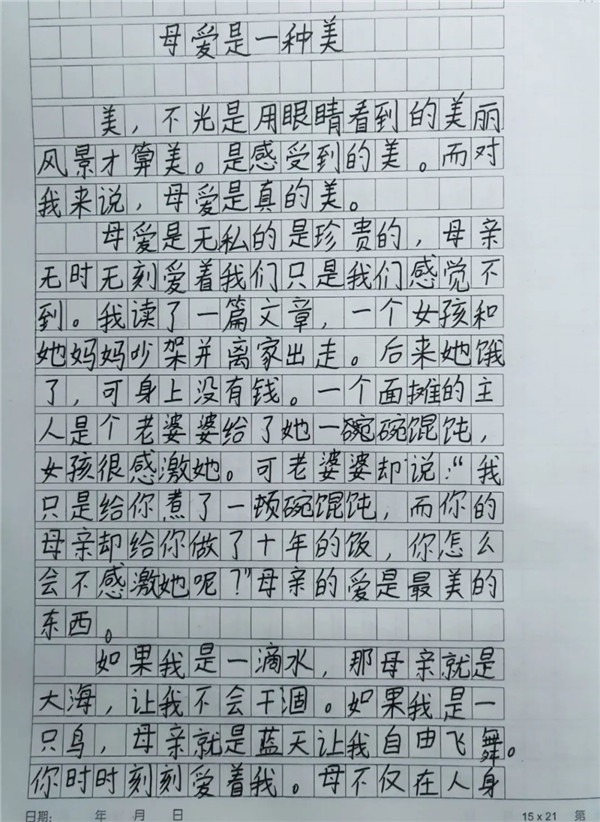 母爱是一种美
美，不光是用眼睛看到的美丽
风景才算美。是感受到的美。而对
我来说，母爱是真的美。
母爱是无私的是珍贵的，母亲
无时无刻爱着我们只是我们感觉不
到。我读了一篇文章，一个女孩和
她妈妈吵架并离家出走。后来她饿
了，可身上没有钱。一个面摊的主
人是个老婆婆给了她一碗碗馄饨，
女孩很感激她。可老婆婆却说：“我
只是给你煮了一顿碗馄饨，而你的
母亲却给你做了十年的饭，你怎么
会不感激她呢？”母亲的爱是最美的
东西。
如果我是一滴水，那母亲就是
大海，让我不会干涸。如果我是一
只鸟，母亲就是蓝天让我自由飞舞。
你时时刻刻爱着我。母不仅在人身
日期: 年 月 日 15 x 21 第